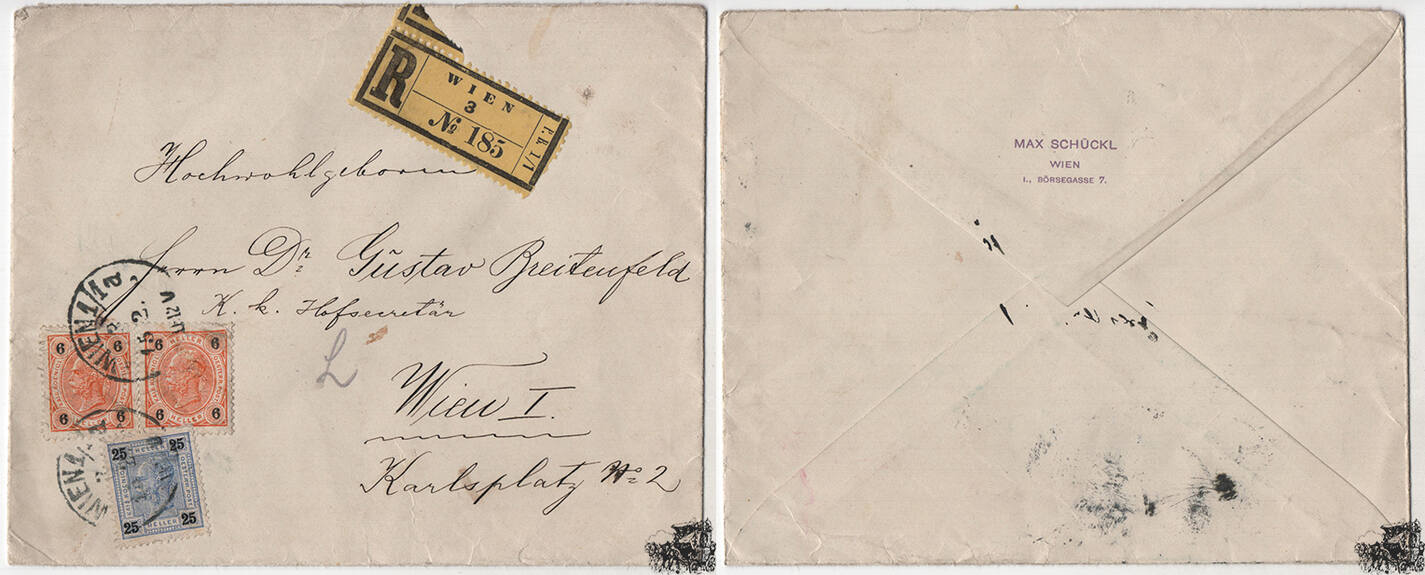 R
WIEN
3
№ 185
P. k. 1/1
Hochwohlgeboren
Herrn Dr. Gustav Breitenfeld
K. k. Hofsecretär
L
Wien I.
Karlsplatz No 2
WIEN 1/1
15 2.
6 6
HELLER
6 6
6 6
HELLER
6 6
WIEN 1/1
25 25
HELLER
25 25
MAX SCHÜCKL
WIEN
I., BÖRSEGASSE 7.